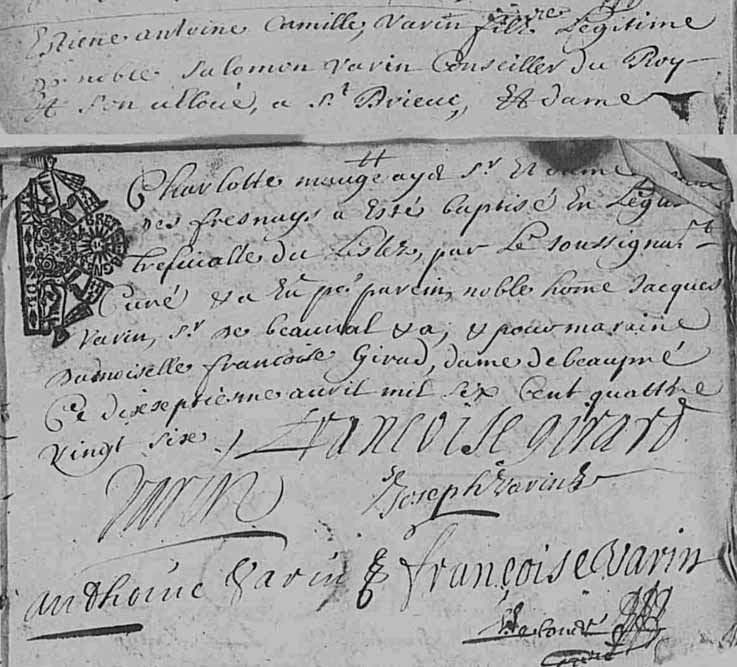 Estiene antoine Camille, Varin fils Legitime
De noble Salomon Varin Conseiller du Roy
Et Son alloué, a St Brieuc, Et dame
Charlotte maugeayd Sr Et dame
des fresnays a Esté baptisé En
trefuialle du Leslez, par Le Soussignant
Curé & a Eu po parein, noble home Jacques
Varin, Sr de beauval & a, & pour maraine
Damoiselle francoise Girad, dame de beaupré
Ce dixseptiesme auril mil six Cent quattre
Vingt six
francoise girard
Varin
Joseph Varin
anthoine Varin
françoise Varin